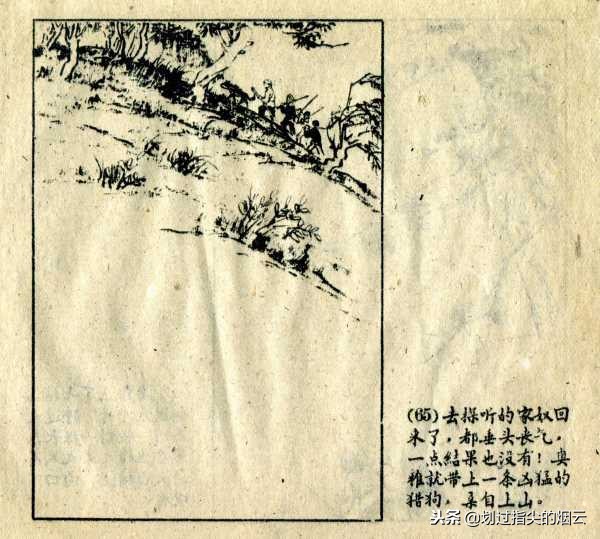 (65)去探听的家奴回
来了，都垂头丧气，
一点結果也没有！奥
雅就带上一条凶猛的
猎狗，亲自上山。
头条 @划过指尖的烟云